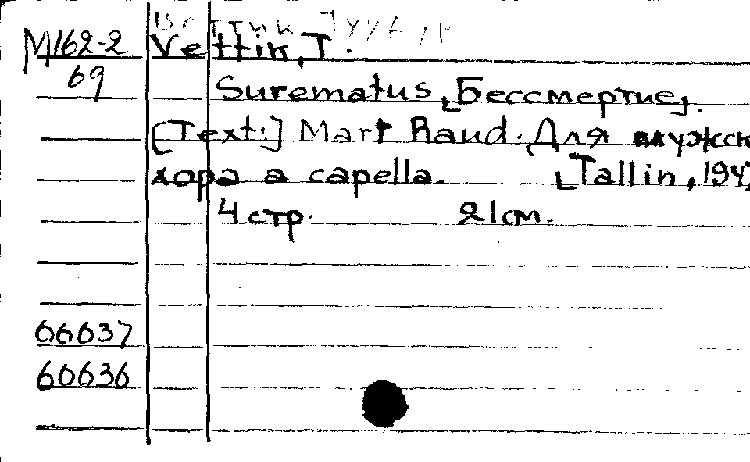 Веттик Туудур
М162-2 Vettik, T.
69
Surematus [Бессмертие].
[Text:] Mart Raud. Для мужск
хора a capella. [Tallin, 194
4 стр. 21см.
66637
60636